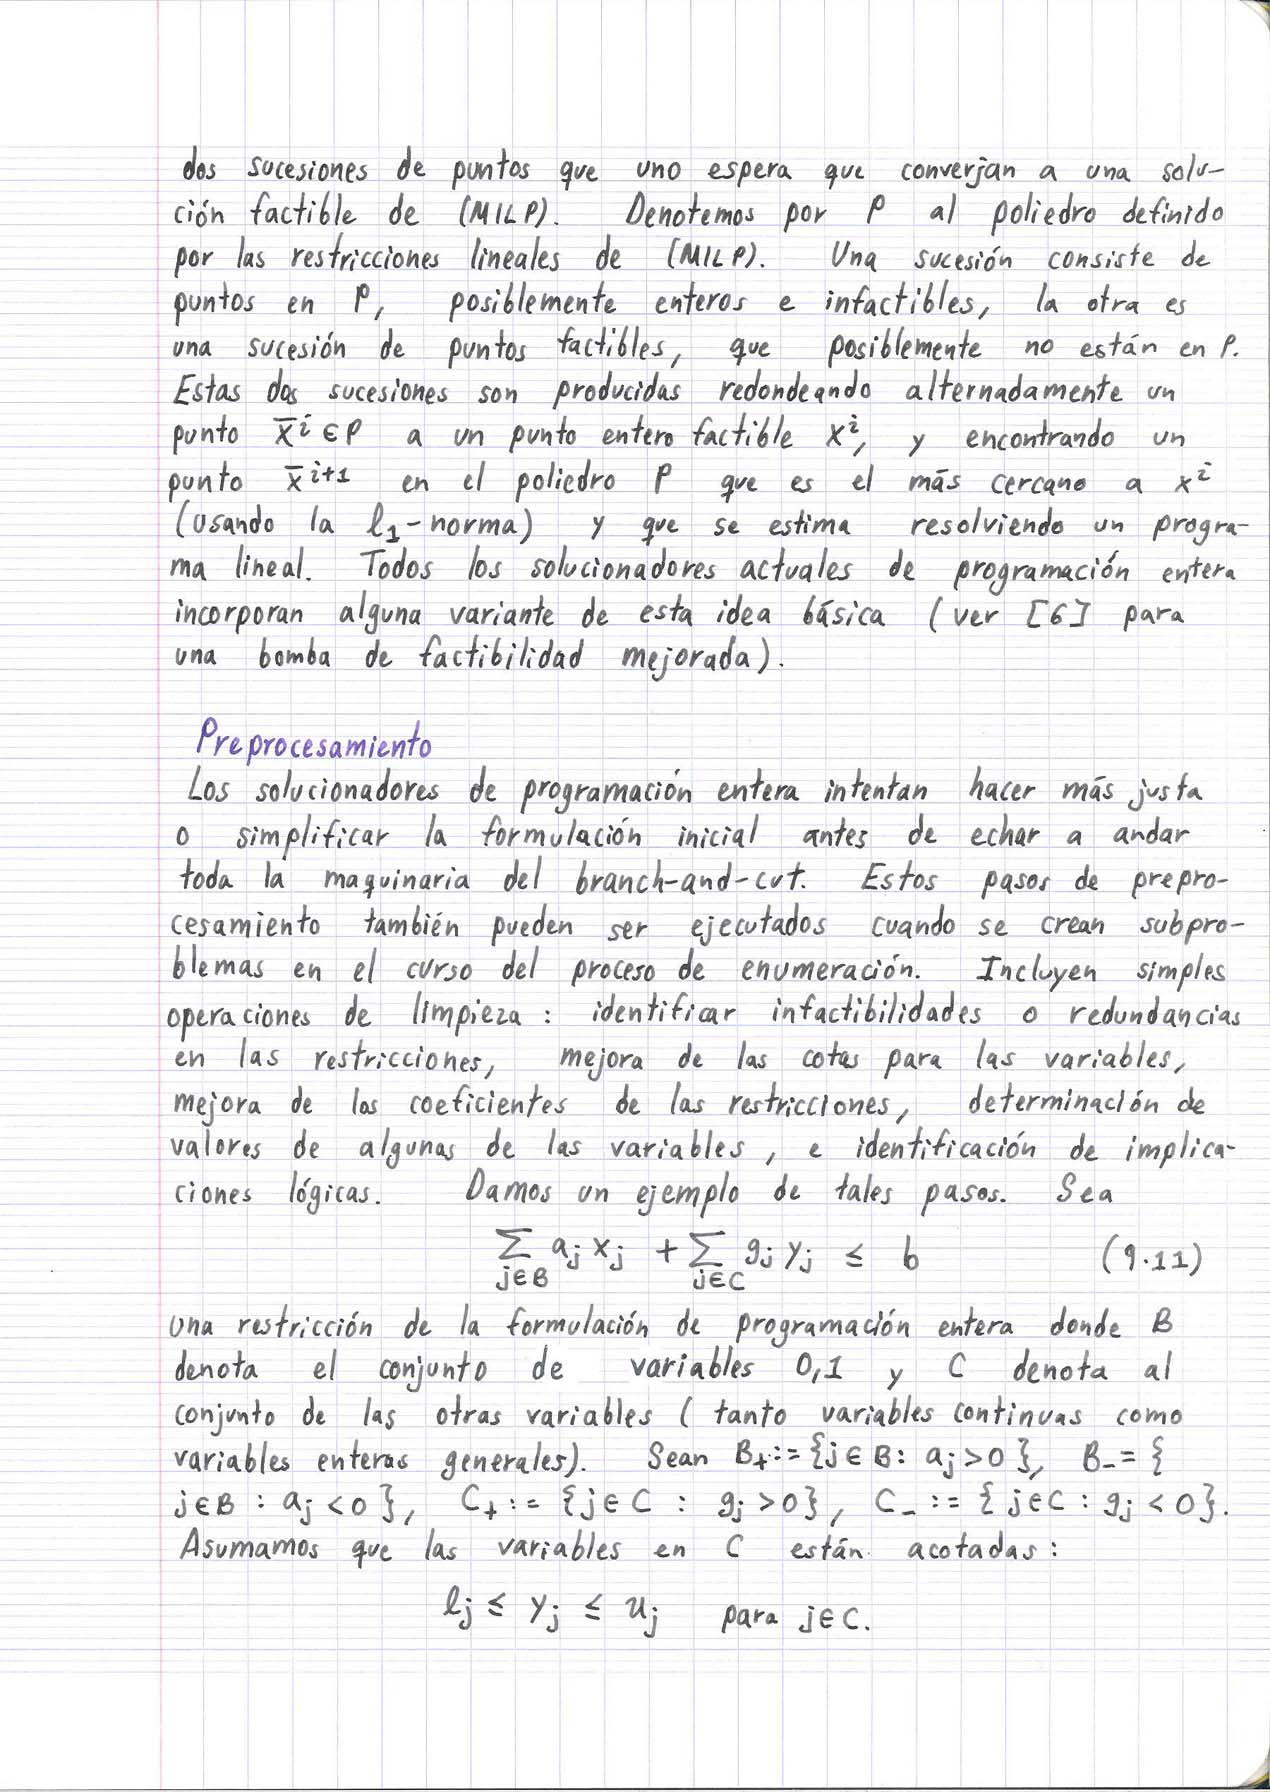 dos sucesiones de puntos que uno espera que converjan a una solu-
ción factible de (MILP). Denotemos por P al poliedro definido
por las restricciones lineales de (MILP). Una sucesión consiste de
puntos en P, posiblemente enteros e infactibles, la otra es
una sucesión de puntos factibles, que posiblemente no están en P.
Estas dos sucesiones son producidas redondeando alternadamente un
punto x̄ⁱ ∈ P a un punto entero factible xⁱ, y encontrando un
punto x̄ⁱ⁺¹ en el poliedro P que es el más cercano a xⁱ
(usando la ℓ₁-norma) y que se estima resolviendo un progra-
ma lineal. Todos los solucionadores actuales de programación entera
incorporan alguna variante de esta idea básica (ver [6] para
una bomba de factibilidad mejorada).
Preprocesamiento
Los solucionadores de programación entera intentan hacer más justa
o simplificar la formulación inicial antes de echar a andar
toda la maquinaria del branch-and-cut. Estos pasos de prepro-
cesamiento también pueden ser ejecutados cuando se crean subpro-
blemas en el curso del proceso de enumeración. Incluyen simples
operaciones de limpieza: identificar infactibilidades o redundancias
en las restricciones, mejora de las cotas para las variables,
mejora de los coeficientes de las restricciones, determinación de
valores de algunas de las variables, e identificación de implica-
ciones lógicas. Damos un ejemplo de tales pasos. Sea
∑_{j∈B} a_j x_j + ∑_{j∈C} g_j y_j ≤ b (9.11)
una restricción de la formulación de programación entera donde B
denota el conjunto de variables 0,1 y C denota al
conjunto de las otras variables (tanto variables continuas como
variables enteras generales). Sean B₊:={j∈B: a_j>0}, B₋={
j∈B : a_j<0}, C₊ := {j∈C : g_j>0}, C₋ := {j∈C : g_j<0}.
Asumamos que las variables en C están acotadas:
ℓ_j ≤ y_j ≤ u_j para j∈C.